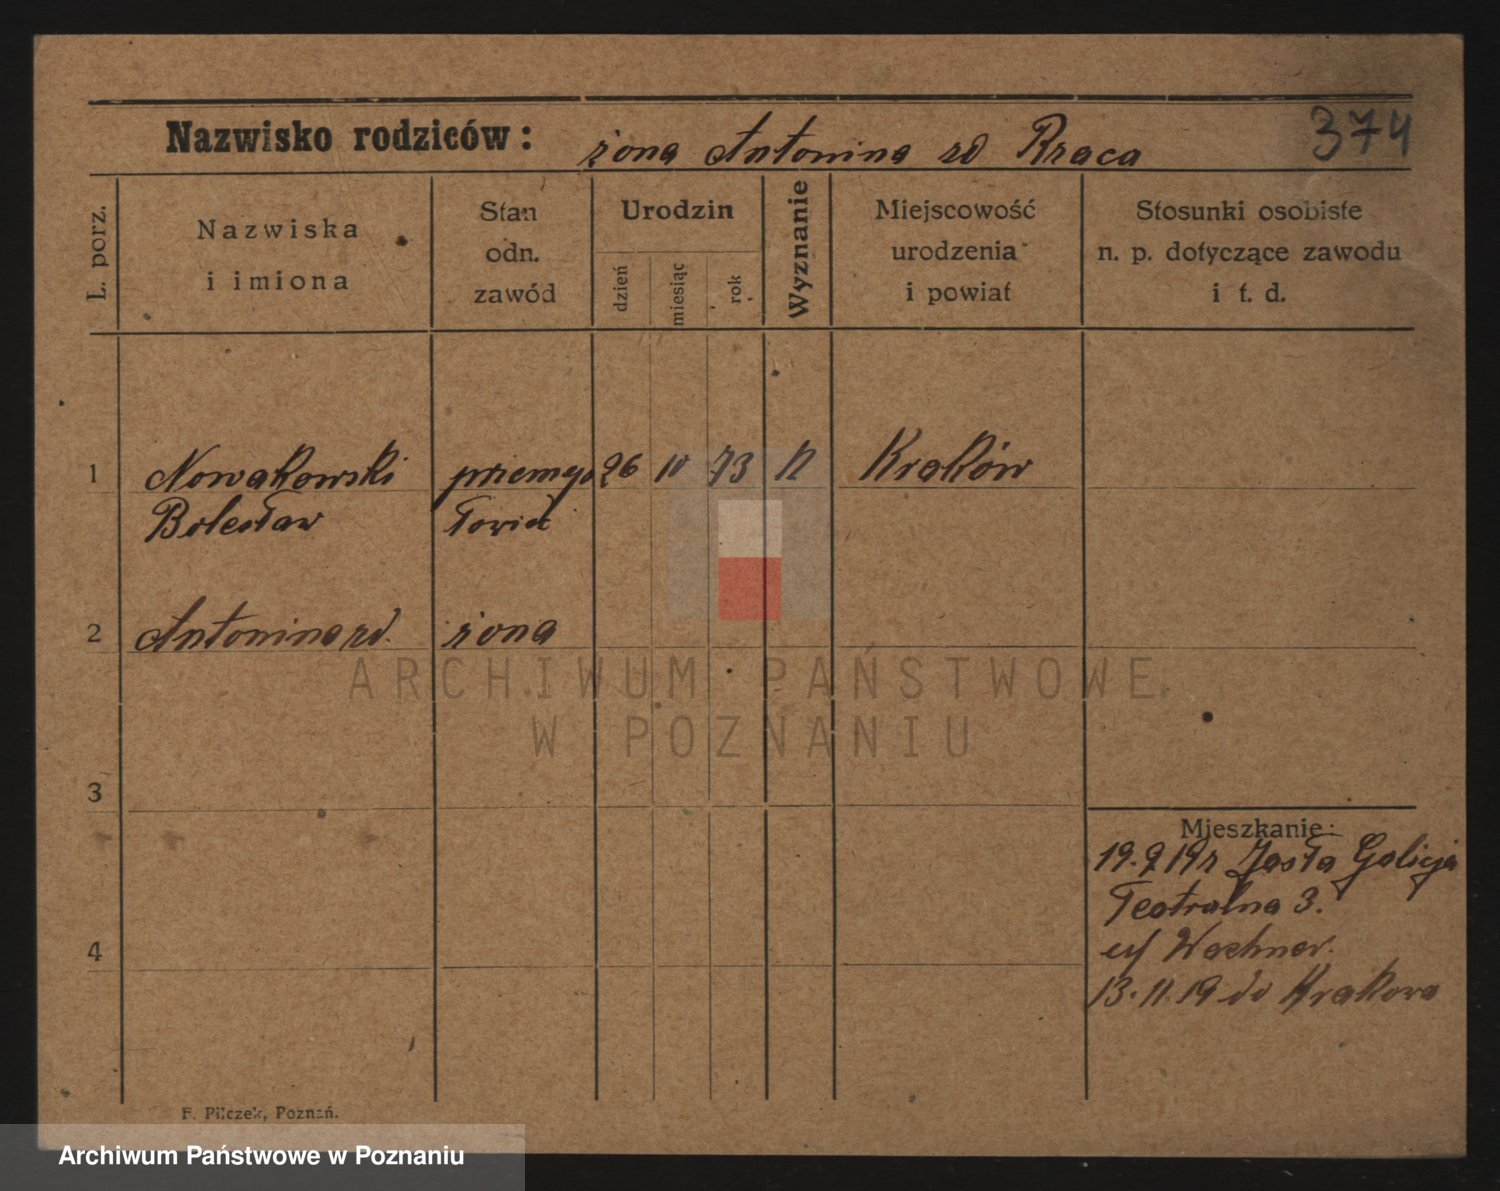 Nazwisko rodziców: żona Antonina zd Braca
374
L. porz.
Nazwiska
i imiona
Stan
odn.
zawód
Urodzin
dzień
miesiąc
rok
Wyznanie
Miejscowość
urodzenia
i powiat
Stosunki osobiste
n. p. dotyczące zawodu
i t. d.
1 Nowakowski przemys 26 10 73 K Kraków
Bolesław łowiec
2 Antonina zd. żona
ARCHIWUM PAŃSTWOWE
W POZNANIU
3
Mieszkanie:
19.9 19r Jasła Galicja
Teatralna 3.
4
13.11.19 do Krakowa
F. Pilczek, Poznań.
Archiwum Państwowe w Poznaniu